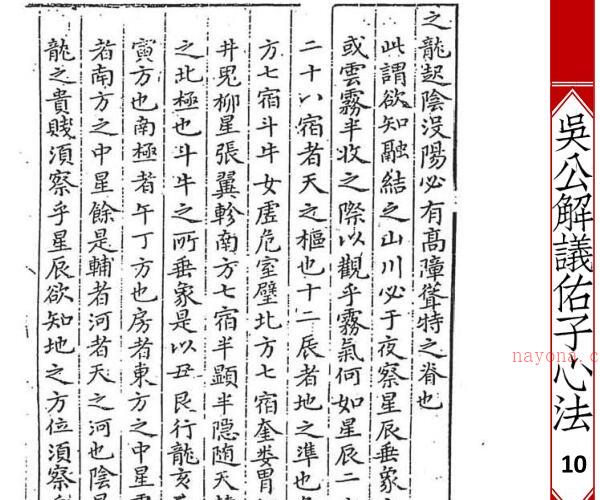 之龍起陰沒陽必有高障聳特之脊也
此謂欲知融結之山川必于夜察星辰垂象
或雲霧半收之際以觀乎霧氣何如星辰二
二十八宿者天之樞也十二辰者地之準也
方七宿斗牛女虛危室壁北方七宿奎婁胃
井鬼柳星張翼軫南方七宿半顯半隐随天
之北極也斗牛之所垂象是以丑艮行龍亥
寅方也南極者午丁方也房者東方之中星
者南方之中星餘是輔者河者天之河也陰是
龍之貴賤湏察乎星辰欲知地之方位湏察
吳公解議佑子心法
10
nayona.c